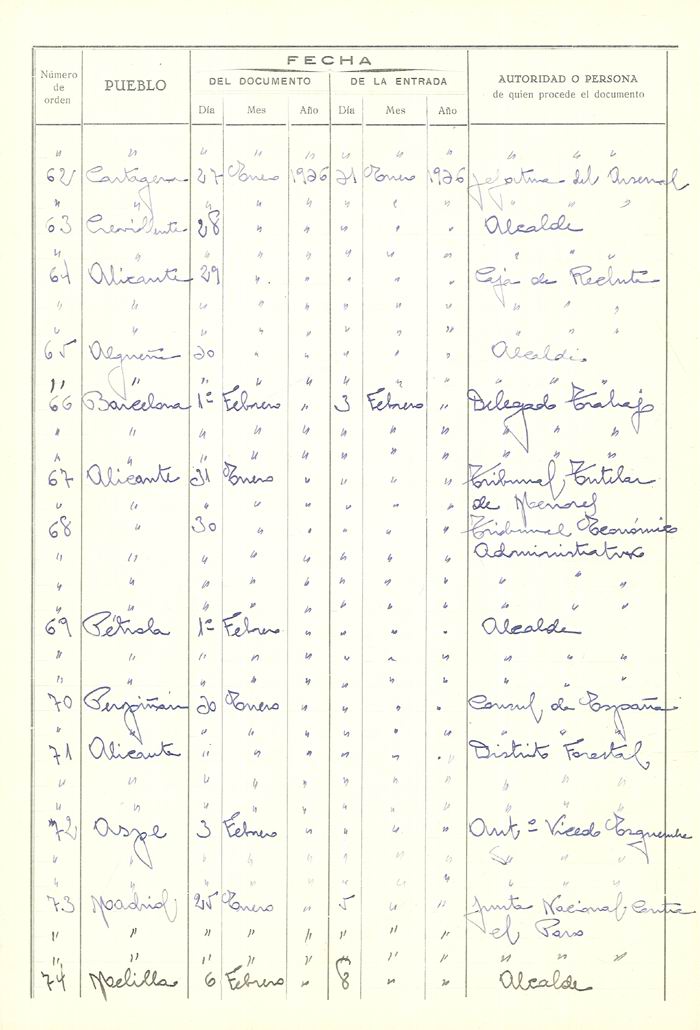 FECHA
Número de orden PUEBLO DEL DOCUMENTO DE LA ENTRADA AUTORIDAD O PERSONA de quien procede el documento
Día Mes Año Día Mes Año
" " " " " " " " " " "
62 Cartagena 27 Enero 1936 31 Enero 1936 Jefatura del Arsenal
" " " " " " " " " " "
63 Crevillente 28 " " " " " Alcalde
" " " " " " " " " " "
64 Alicante 29 " " " " " Caja de Recluta
" " " " " " " " " " "
" " " " " " " " " " "
65 Algueña 30 " " " " " Alcalde
" " " " " " " " " " "
66 Barcelona 1º Febrero " 3 Febrero " Delegado Trabajo
" " " " " " " " " " "
" " " " " " " " " " "
67 Alicante 31 Enero " " " " Tribunal Tutelar
" " " " " " " " de Menores
68 " 30 " " " " " Tribunal Económico
" " " " " " " " Administrativo
" " " " " " " " " "
" " " " " " " " " " "
69 Pétrola 1º Febrero " " " " Alcalde
" " " " " " " " " " "
" " " " " " " " " " "
70 Perpiñán 30 Enero " " " " Consul de España
" " " " " " " " " " "
71 Alicante " " " " " " Distrito Forestal
" " " " " " " " " " "
" " " " " " " " " " "
72 Aspe 3 Febrero " " " " Antº Vicedo
" " " " " " " " " "
" " " " " " " " " " "
73 Madrid 25 Enero " 5 " " Junta Nacional Contra
" " " " " " " " el Paro
" " " " " " " " " " "
74 Melilla 6 Febrero " 8 " " Alcalde